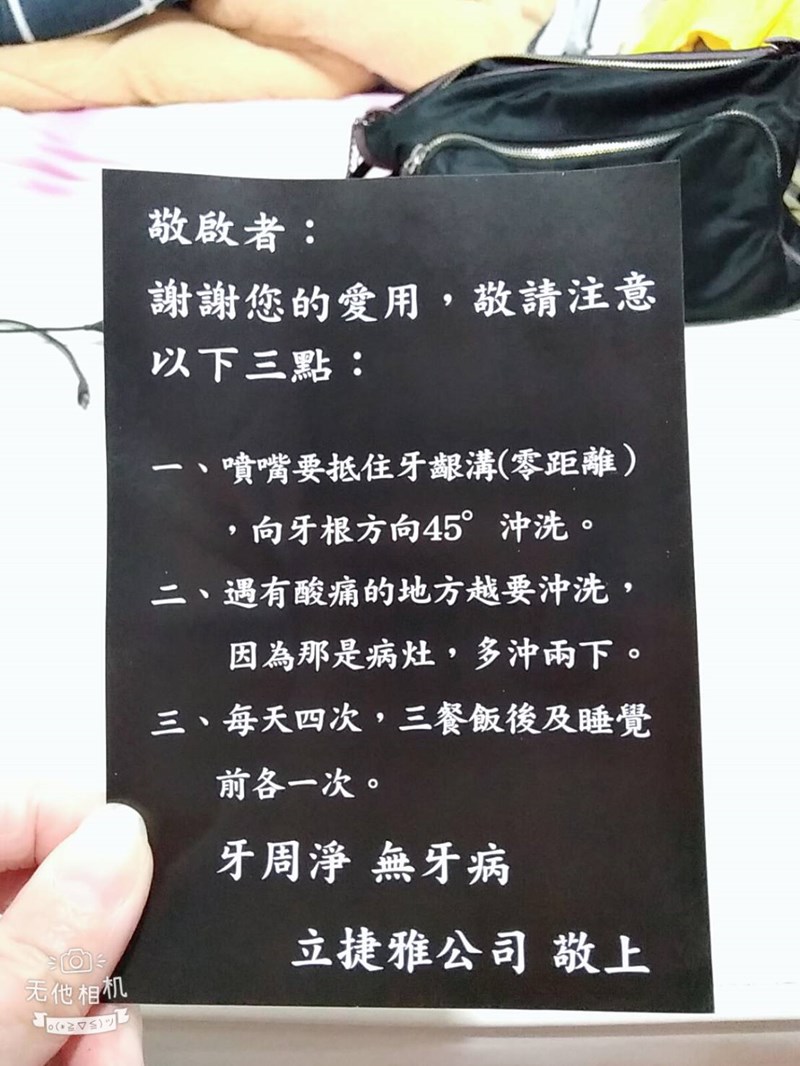 敬啟者：
謝謝您的愛用，敬請注意
以下三點：
一、噴嘴要抵住牙齦溝(零距離)
，向牙根方向45°沖洗。
二、遇有酸痛的地方越要沖洗，
因為那是病灶，多沖兩下。
三、每天四次，三餐飯後及睡覺
前各一次。
牙周淨 無牙病
立捷雅公司 敬上
无他相机
o(*≧▽≦)ツ